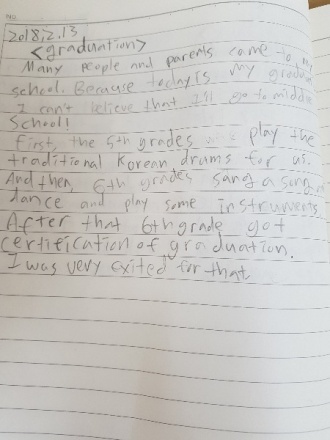 NO.
2018.2.13
<graduation>
Many people and parents came to my
school. Because today is my
I can't believe that I'll go to middle
School!
First, the 5th grades play the
traditional Korean drums for us.
And then, 6th grades sang a song
dance and play some instruments
After that 6th grade got
certification of graduation.
I was very exited for that